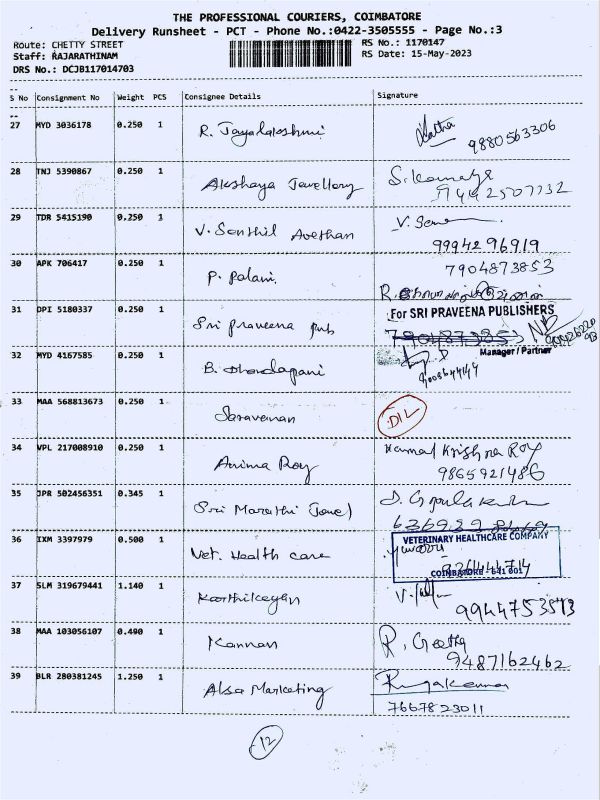 THE PROFESSIONAL COURIERS, COIMBATORE
Delivery Runsheet - PCT - Phone No.:0422-3505555 - Page No.:3
Route: CHETTY STREET RS No.: 1170147
Staff: RAJARATHINAM RS Date: 15-May-2023
DRS No.: DCJB117014703
S No Consignment No Weight PCS Consignee Details Signature
27 MYD 3036178 0.250 1 R. Jayalakshmi Latha
9880563306
28 TNJ 5390867 0.250 1 Akshaya Jewellery
29 TDR 5415190 0.250 1 V. Senthil
9994296919
30 APK 706417 0.250 1 P. Palani 7904873853
31 DPI 5180337 0.250 1 Sri Praveena Pub For SRI PRAVEENA PUBLISHERS
7904873853
Manager / Partner
32 MYD 4167585 0.250 1 B.
33 MAA 568813673 0.250 1 Saravanan DIL
34 VPL 217008910 0.250 1 Anima Roy Krishna Roy
9865921486
35 JPR 502456351 0.345 1 Sri Marathi Jewel
36 IXM 3397979 0.500 1 Vet. Health care VETERINARY HEALTHCARE COMPANY
COIMBATORE - 641 001
37 SLM 319679441 1.140 1 Karthikeyan
38 MAA 103056107 0.490 1 Kannan R. Geetha
9487162462
39 BLR 280381245 1.250 1 Alsa Marketing
7667823011
12